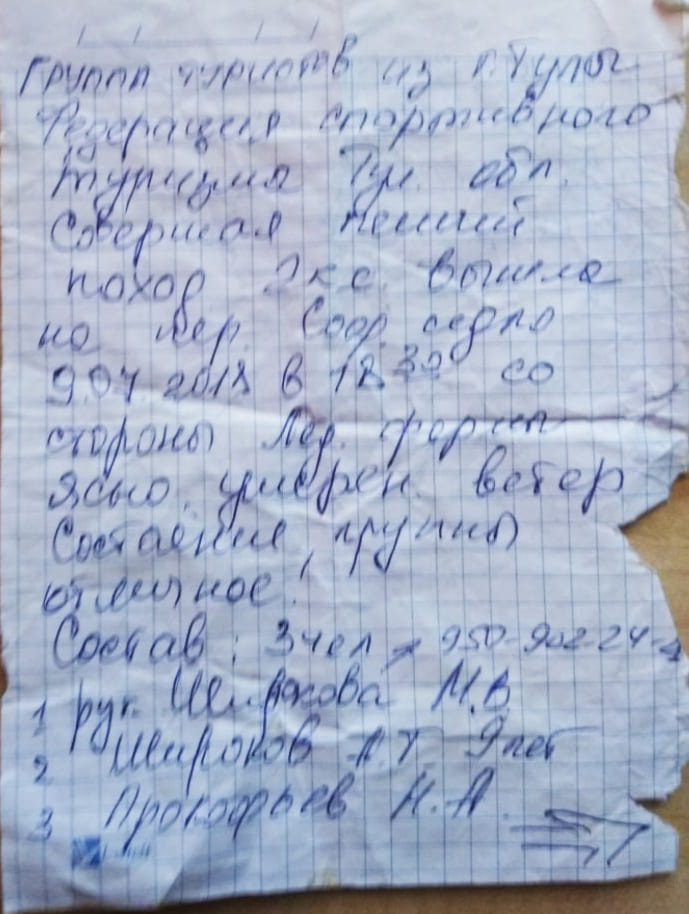 Групп туристов из г. Тулы
Федерация спортивного
туризма Тул. обл.
Совершая пеший
поход 2 к.с. вышла
на пер. Соор. седло
9.07.2018 в 12 30 со
стороны Лед. фермы
Ясно, умерен. ветер
Состояние группы
отличное!
Состав: 3 чел 950-902-24-
1 рук. Широкова М.В.
2 Широков 9 лет
3 Прокофьев Н.А.